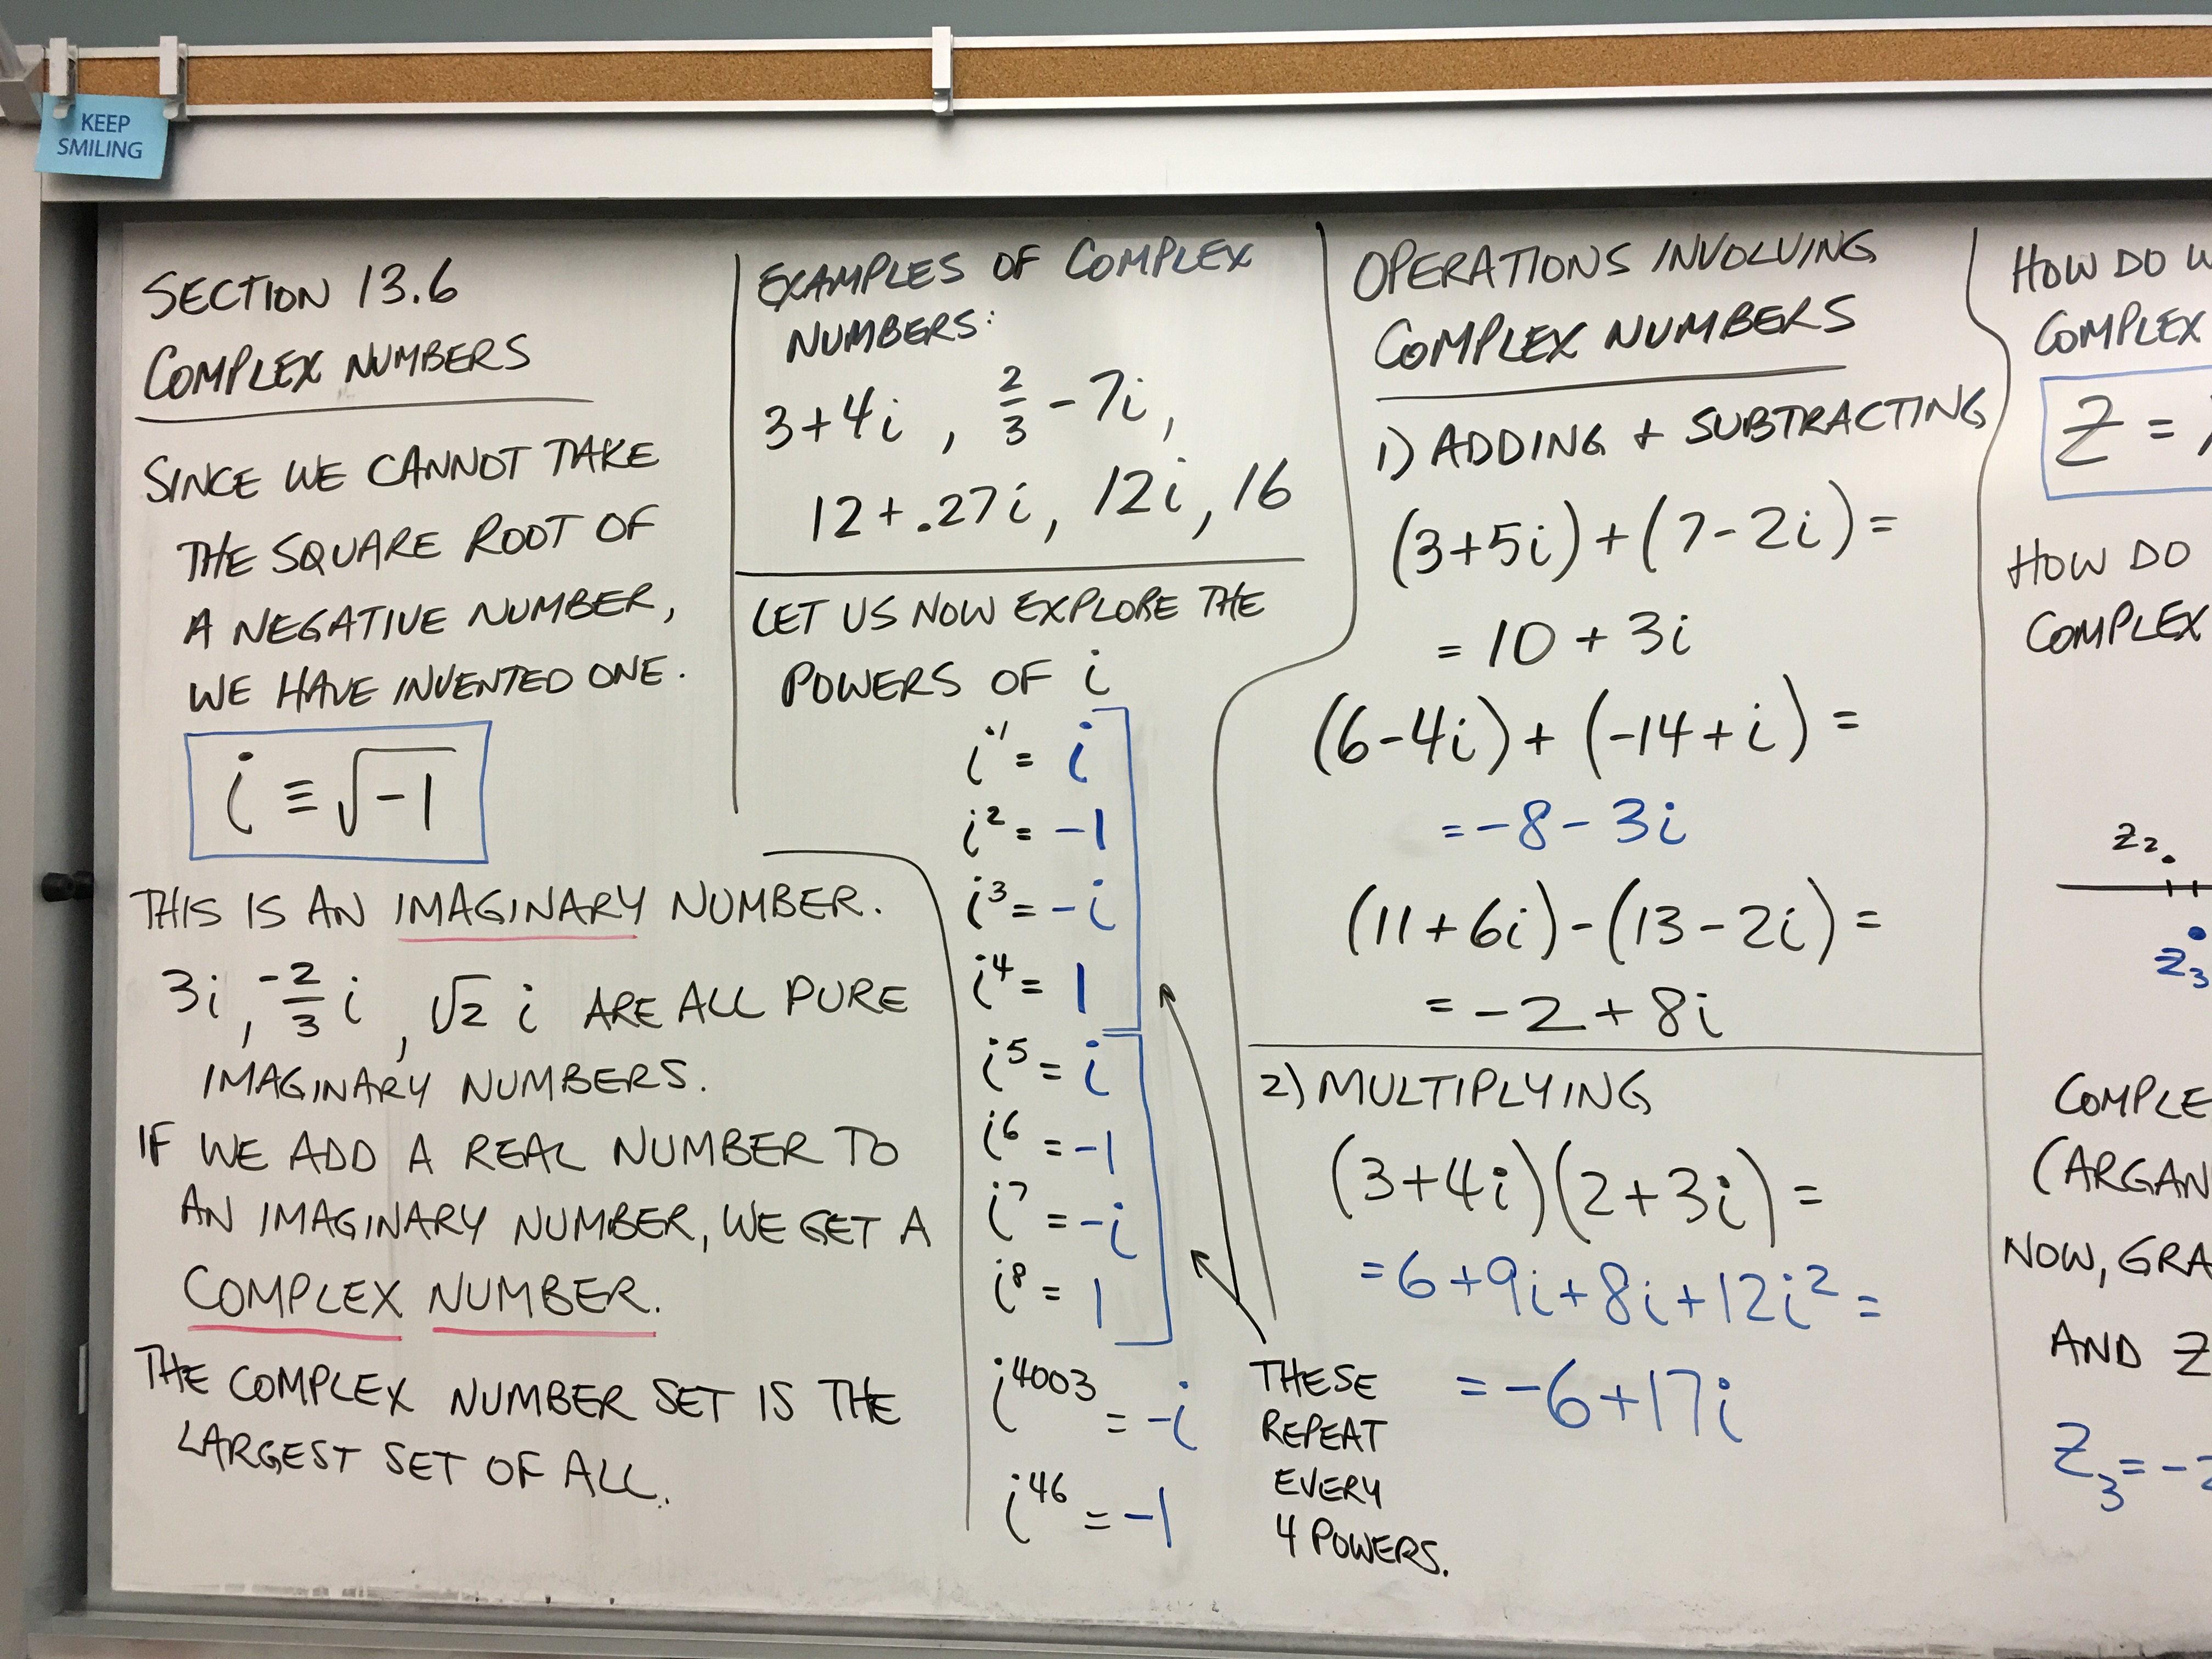 KEEP
SMILING
SECTION 13.6
COMPLEX NUMBERS
SINCE WE CANNOT TAKE
THE SQUARE ROOT OF
A NEGATIVE NUMBER,
WE HAVE INVENTED ONE.
i ≡ √-1
THIS IS AN IMAGINARY NUMBER.
3i, -2/3 i, √2 i ARE ALL PURE
IMAGINARY NUMBERS.
IF WE ADD A REAL NUMBER TO
AN IMAGINARY NUMBER, WE GET A
COMPLEX NUMBER.
THE COMPLEX NUMBER SET IS THE
LARGEST SET OF ALL.
EXAMPLES OF COMPLEX
NUMBERS:
3+4i, 2/3 - 7i,
12+.27i, 12i, 16
LET US NOW EXPLORE THE
POWERS OF i
i¹ = i
i² = -1
i³ = -i
i⁴ = 1
i⁵ = i
i⁶ = -1
i⁷ = -i
i⁸ = 1
i⁴⁰⁰³ = -i
i⁴⁶ = -1
THESE
REPEAT
EVERY
4 POWERS.
OPERATIONS INVOLVING
COMPLEX NUMBERS
1) ADDING + SUBTRACTING
(3+5i)+(7-2i)=
= 10 + 3i
(6-4i)+(-14+i)=
= -8 - 3i
(11+6i)-(13-2i)=
= -2+8i
2) MULTIPLYING
(3+4i)(2+3i)=
= 6+9i+8i+12i² =
= -6+17i
HOW DO
COMPLEX
Z =
HOW DO
COMPLEX
Z₂
Z₃
NOW,
AND Z
Z₃ = -2